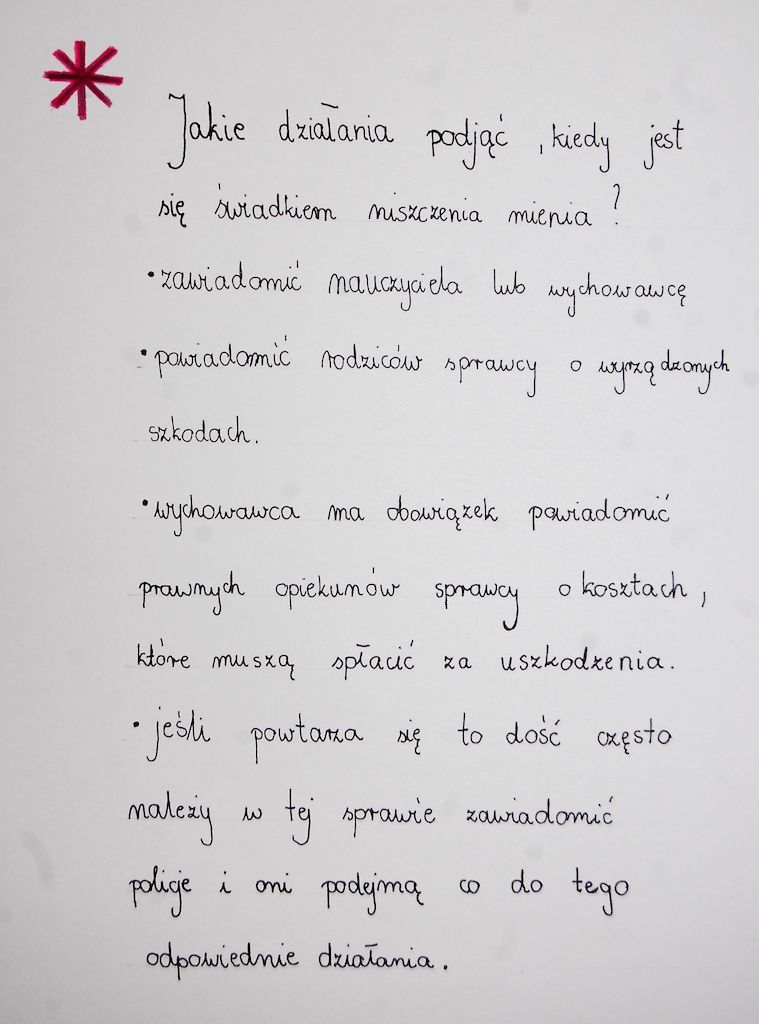 Jakie działania podjąć , kiedy jest
się świadkiem niszczenia mienia ?
• zawiadomić nauczyciela lub wychowawcę
• powiadomić rodziców sprawcy o wyrządzonych
szkodach.
• wychowawca ma obowiązek powiadomić
prawnych opiekunów sprawcy o kosztach ,
które muszą spłacić za uszkodzenia.
• jeśli powtarza się to dość często
należy w tej sprawie zawiadomić
policje i oni podejmą co do tego
odpowiednie działania.